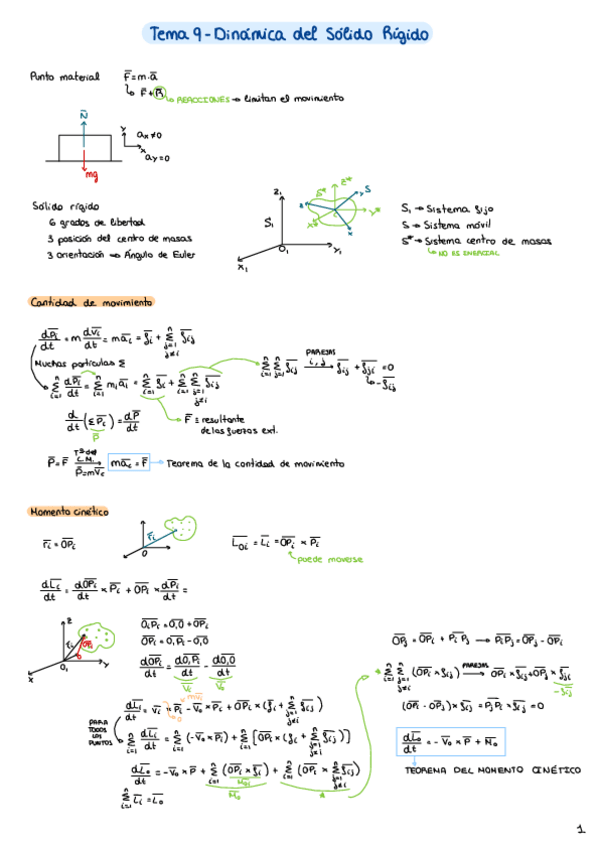 Tema 9 - Dinámica del Sólido Rígido
Punto material F̄=m·ā
F̄+R̄
REACCIONES → limitan el movimiento
N̄
y
x
ax≠0
ay=0
mg
Sólido rígido
6 grados de libertad
3 posición del centro de masas
3 orientación → Ángulo de Euler
z₁
S₁
O₁
y₁
x₁
S*
z*
S
y*
x*
S₁ → Sistema fijo
S → Sistema móvil
S* → Sistema centro de masas
NO ES INERCIAL
Cantidad de movimiento
dP̄ᵢ/dt = m dv̄ᵢ/dt = māᵢ = f̄ᵢ + Σⁿⱼ₌₁ ⱼ≠ᵢ f̄ᵢⱼ
Muchas partículas Σ
Σⁿᵢ₌₁ dP̄ᵢ/dt = Σⁿᵢ₌₁ mᵢāᵢ = Σⁿᵢ₌₁ f̄ᵢ + Σⁿᵢ₌₁ Σⁿⱼ₌₁ ⱼ≠ᵢ f̄ᵢⱼ
Σⁿᵢ₌₁ Σⁿⱼ₌₁ f̄ᵢⱼ PAREJAS i, j → f̄ᵢⱼ + f̄ⱼᵢ = 0
-f̄ᵢⱼ
d/dt (ΣP̄ᵢ) = dP̄/dt
P̄
F̄ ≡ resultante
de las fuerzas ext.
Ṗ̄ = F̄ Tª del C.M. P̄=mv̄c → māc = F̄ → Teorema de la cantidad de movimiento
Momento cinético
r̄ᵢ = OP̄ᵢ
r̄ᵢ
O
L̄oᵢ = L̄ᵢ = OP̄ᵢ × P̄ᵢ
puede moverse
dL̄ᵢ/dt = dOP̄ᵢ/dt × P̄ᵢ + OP̄ᵢ × dP̄ᵢ/dt =
z
r̄ᵢ
OPᵢ
O
O₁
x
y
O₁Pᵢ = O₁O + OPᵢ
OPᵢ = O₁Pᵢ - O₁O
dOPᵢ/dt = dO₁Pᵢ/dt - dO₁O/dt
v̄ᵢ
v̄o
dL̄ᵢ/dt = v̄ᵢ × P̄ᵢ - v̄o × P̄ᵢ + OPᵢ × (f̄ᵢ + Σⁿⱼ₌₁ ⱼ≠ᵢ f̄ᵢⱼ)
mv̄ᵢ
0
PARA
TODOS
LOS
PUNTOS
Σⁿᵢ₌₁ dL̄ᵢ/dt = Σⁿᵢ₌₁ (-v̄o × P̄ᵢ) + Σⁿᵢ₌₁ [OPᵢ × (fᵢ + Σⁿⱼ₌₁ ⱼ≠ᵢ f̄ᵢⱼ)]
dL̄o/dt = -v̄o × P̄ + Σⁿᵢ₌₁ (OPᵢ × f̄ᵢ) + Σⁿᵢ₌₁ (OPᵢ × Σⁿⱼ₌₁ ⱼ≠ᵢ f̄ᵢⱼ)
M̄oᵢ
M̄o
*
Σⁿᵢ₌₁ L̄ᵢ = L̄o
OPⱼ = OPᵢ + PᵢPⱼ → PᵢPⱼ = OPⱼ - OPᵢ
* Σⁿᵢ₌₁ Σⁿⱼ₌₁ ⱼ≠ᵢ (OPᵢ × f̄ᵢⱼ) PAREJAS → OPᵢ × f̄ᵢⱼ + OPⱼ × f̄ⱼᵢ
-f̄ᵢⱼ
(OPᵢ - OPⱼ) × f̄ᵢⱼ = PⱼPᵢ × f̄ᵢⱼ = 0
dL̄o/dt = -v̄o × P̄ + M̄o
TEOREMA DEL MOMENTO CINÉTICO
1